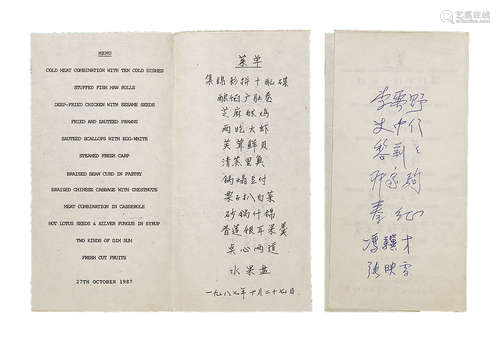 MENU
COLD MEAT COMBINATION WITH TEN COLD DISHES
STUFFED FISH MAW ROLLS
DEEP-FRIED CHICKEN WITH SESAME SEEDS
FRIED AND SAUTEED PRAWNS
SAUTEED SCALLOPS WITH EGG-WHITE
STEAMED FRESH CARP
BRAISED BEAN CURD IN PASTRY
BRAISED CHINESE CABBAGE WITH CHESTNUTS
MEAT COMBINATION IN CASSEROLE
HOT LOTUS SEEDS & SILVER FUNGUS IN SYRUP
TWO KINDS OF DIM SUM
FRESH CUT FRUITS
27TH OCTOBER 1987
菜单
集锦拼十配碟
酿广肚卷
芝麻鸡
两吃大虾
芙蓉鲜贝
清蒸里奥
锅塌豆付
栗子扒白菜
砂锅什锦
普莲银耳菜羹
点心两道
水果盘
一九八七年十月二十七日
李霁野
黎莉莉
秦
冯骥才
张映雪